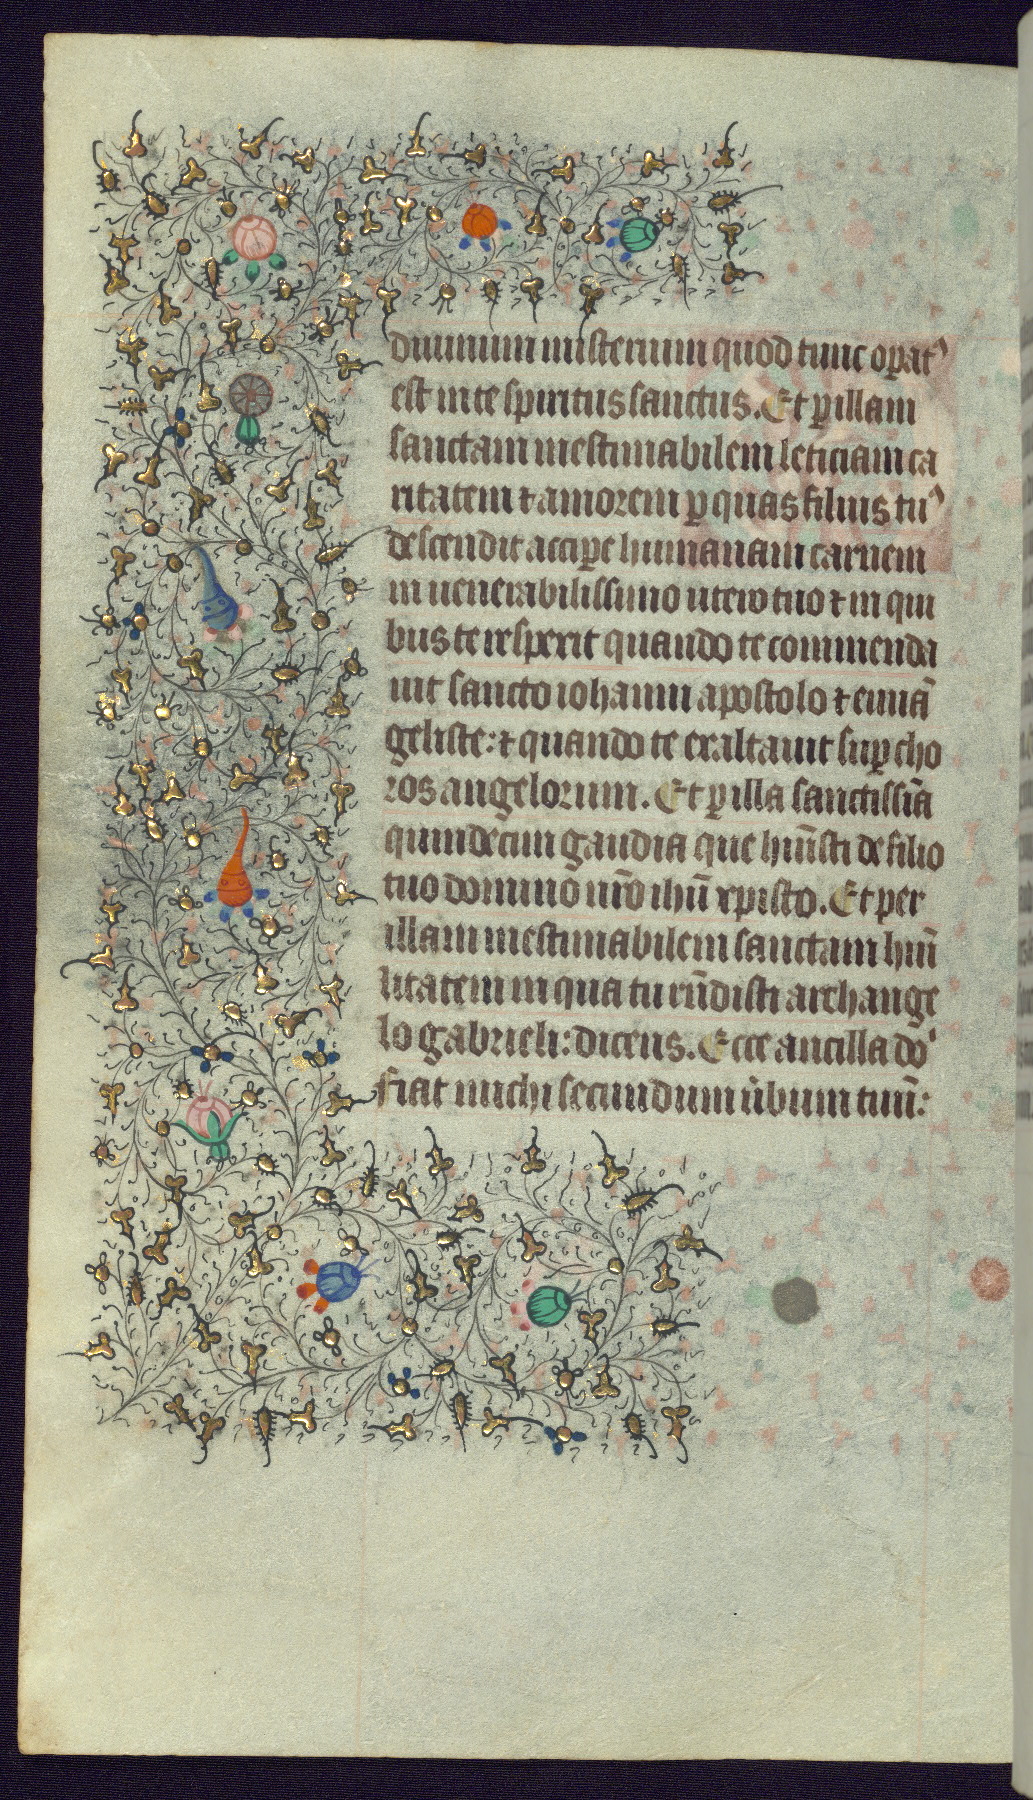 diuinum misterium quod tunc opat᷒
est in te spiritus sanctus. Et ꝑ illam
sanctam inestimabilem leticiam ca
ritatem ⁊ amorem ꝑ quas filius tu᷒
descendit accipe humanam carnem
in uenerabilissimo utero tuo ⁊ in qui
bus te respexit quando te commenda
uit sancto iohanni apostolo ⁊ euuā
geliste: ⁊ quando te exaltauit suꝑ cho
ros angelorum. Et ꝑ illa sanctissīa
quindecim gaudia que hūisti de filio
tuo domino nr̄o ihū xpisto. Et per
illam inestimabilem sanctam hūi
litatem in qua tu rn̄disti archange
lo gabrieli: dicens. Ecce ancilla do'
fiat michi secundum ūbum tuū: